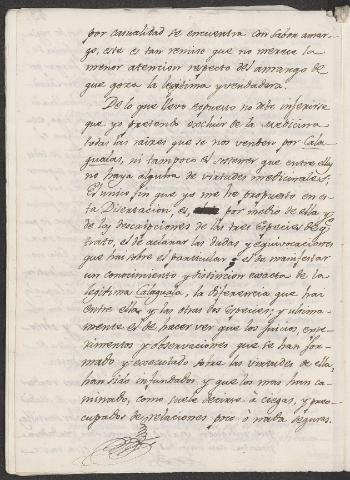 por casualidad se encuentra con sabor amar-
go, este es tan remiso que no merece la
menor atencion respecto del amargo de
que goza la legitima y verdadera.
De lo que llevo expuesto no debe inferirse
que yo pretendo excluir de la Medicina
todas las raices que se nos venden por Cala
gualas, ni tampoco el sostener que entre ellas
no haya alguna de virtudes medicinales;
El unico fin que yo me he propuesto en es
ta Disertacion es, por medio de ella y
de las descripciones de las tres Especies de q.e
trato, el de aclarar las dudas y equivocaciones
que hai sobre el particular; el de manifestar
un conocimiento y distincion exacta de la
legitima Calaguala, la diferencia que hai
entre ella y las otras dos Especies; y ultima-
mente el de hacer ver que los juicios, expe-
rimentos y observaciones que se han for-
mado y executado sobre las virtudes de ella,
han sido infundados, y que los mas han ca
minado, como suele decirse à ciegas, y preo-
cupados de relaciones poco ò nada seguras.